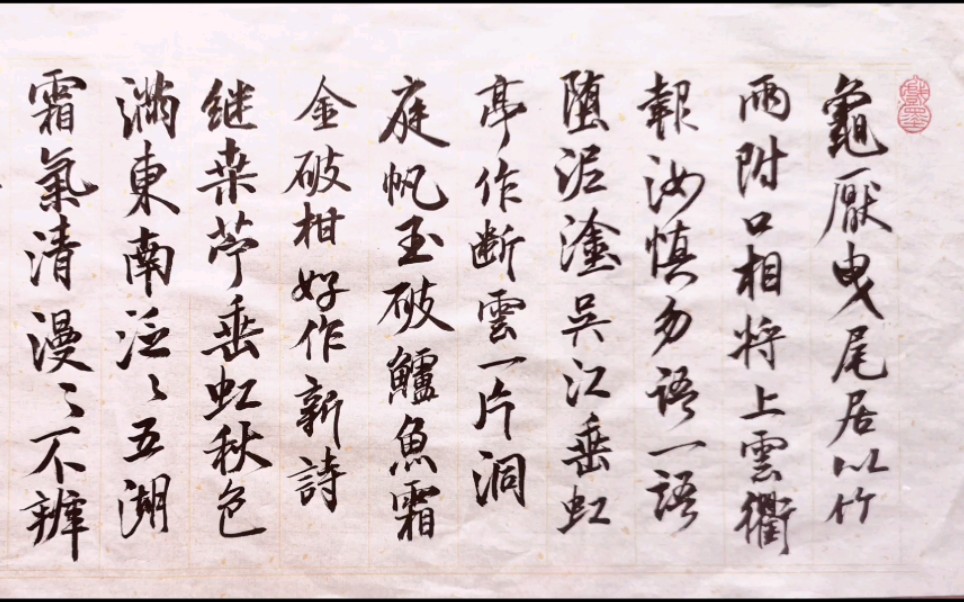 龜厭曳尾居以竹
兩附口相将上雲衢
報汝慎勿語一語
堕泥塗吴江垂虹
亭作断雲一片洞
庭帆玉破鱸魚霜
金破柑好作新詩
继桑苧垂虹秋色
満東南泛〻五湖
霜氣清漫〻不辨